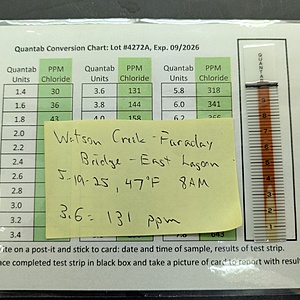 Quantab Conversion Chart: Lot #4272A, Exp. 09/2026
Quantab Units PPM Chloride Quantab Units PPM Chloride Quantab Units PPM Chloride
1.4 30 3.6 131 5.8 318
1.6 36 3.8 144 6.0 341
1.8 43 4.0 158 6.2 366
2.0
2.2
2.4
2.6
2.8
3.0
3.2
3.4 7.8 643
Watson Creek - Faraday
Bridge - East Lagoon
5-19-25, 47°F 8AM
3.6 = 131 ppm
ite on a post-it and stick to card: date and time of sample, results of test strip.
ace completed test strip in black box and take a picture of card to report with resul
QUANTAB